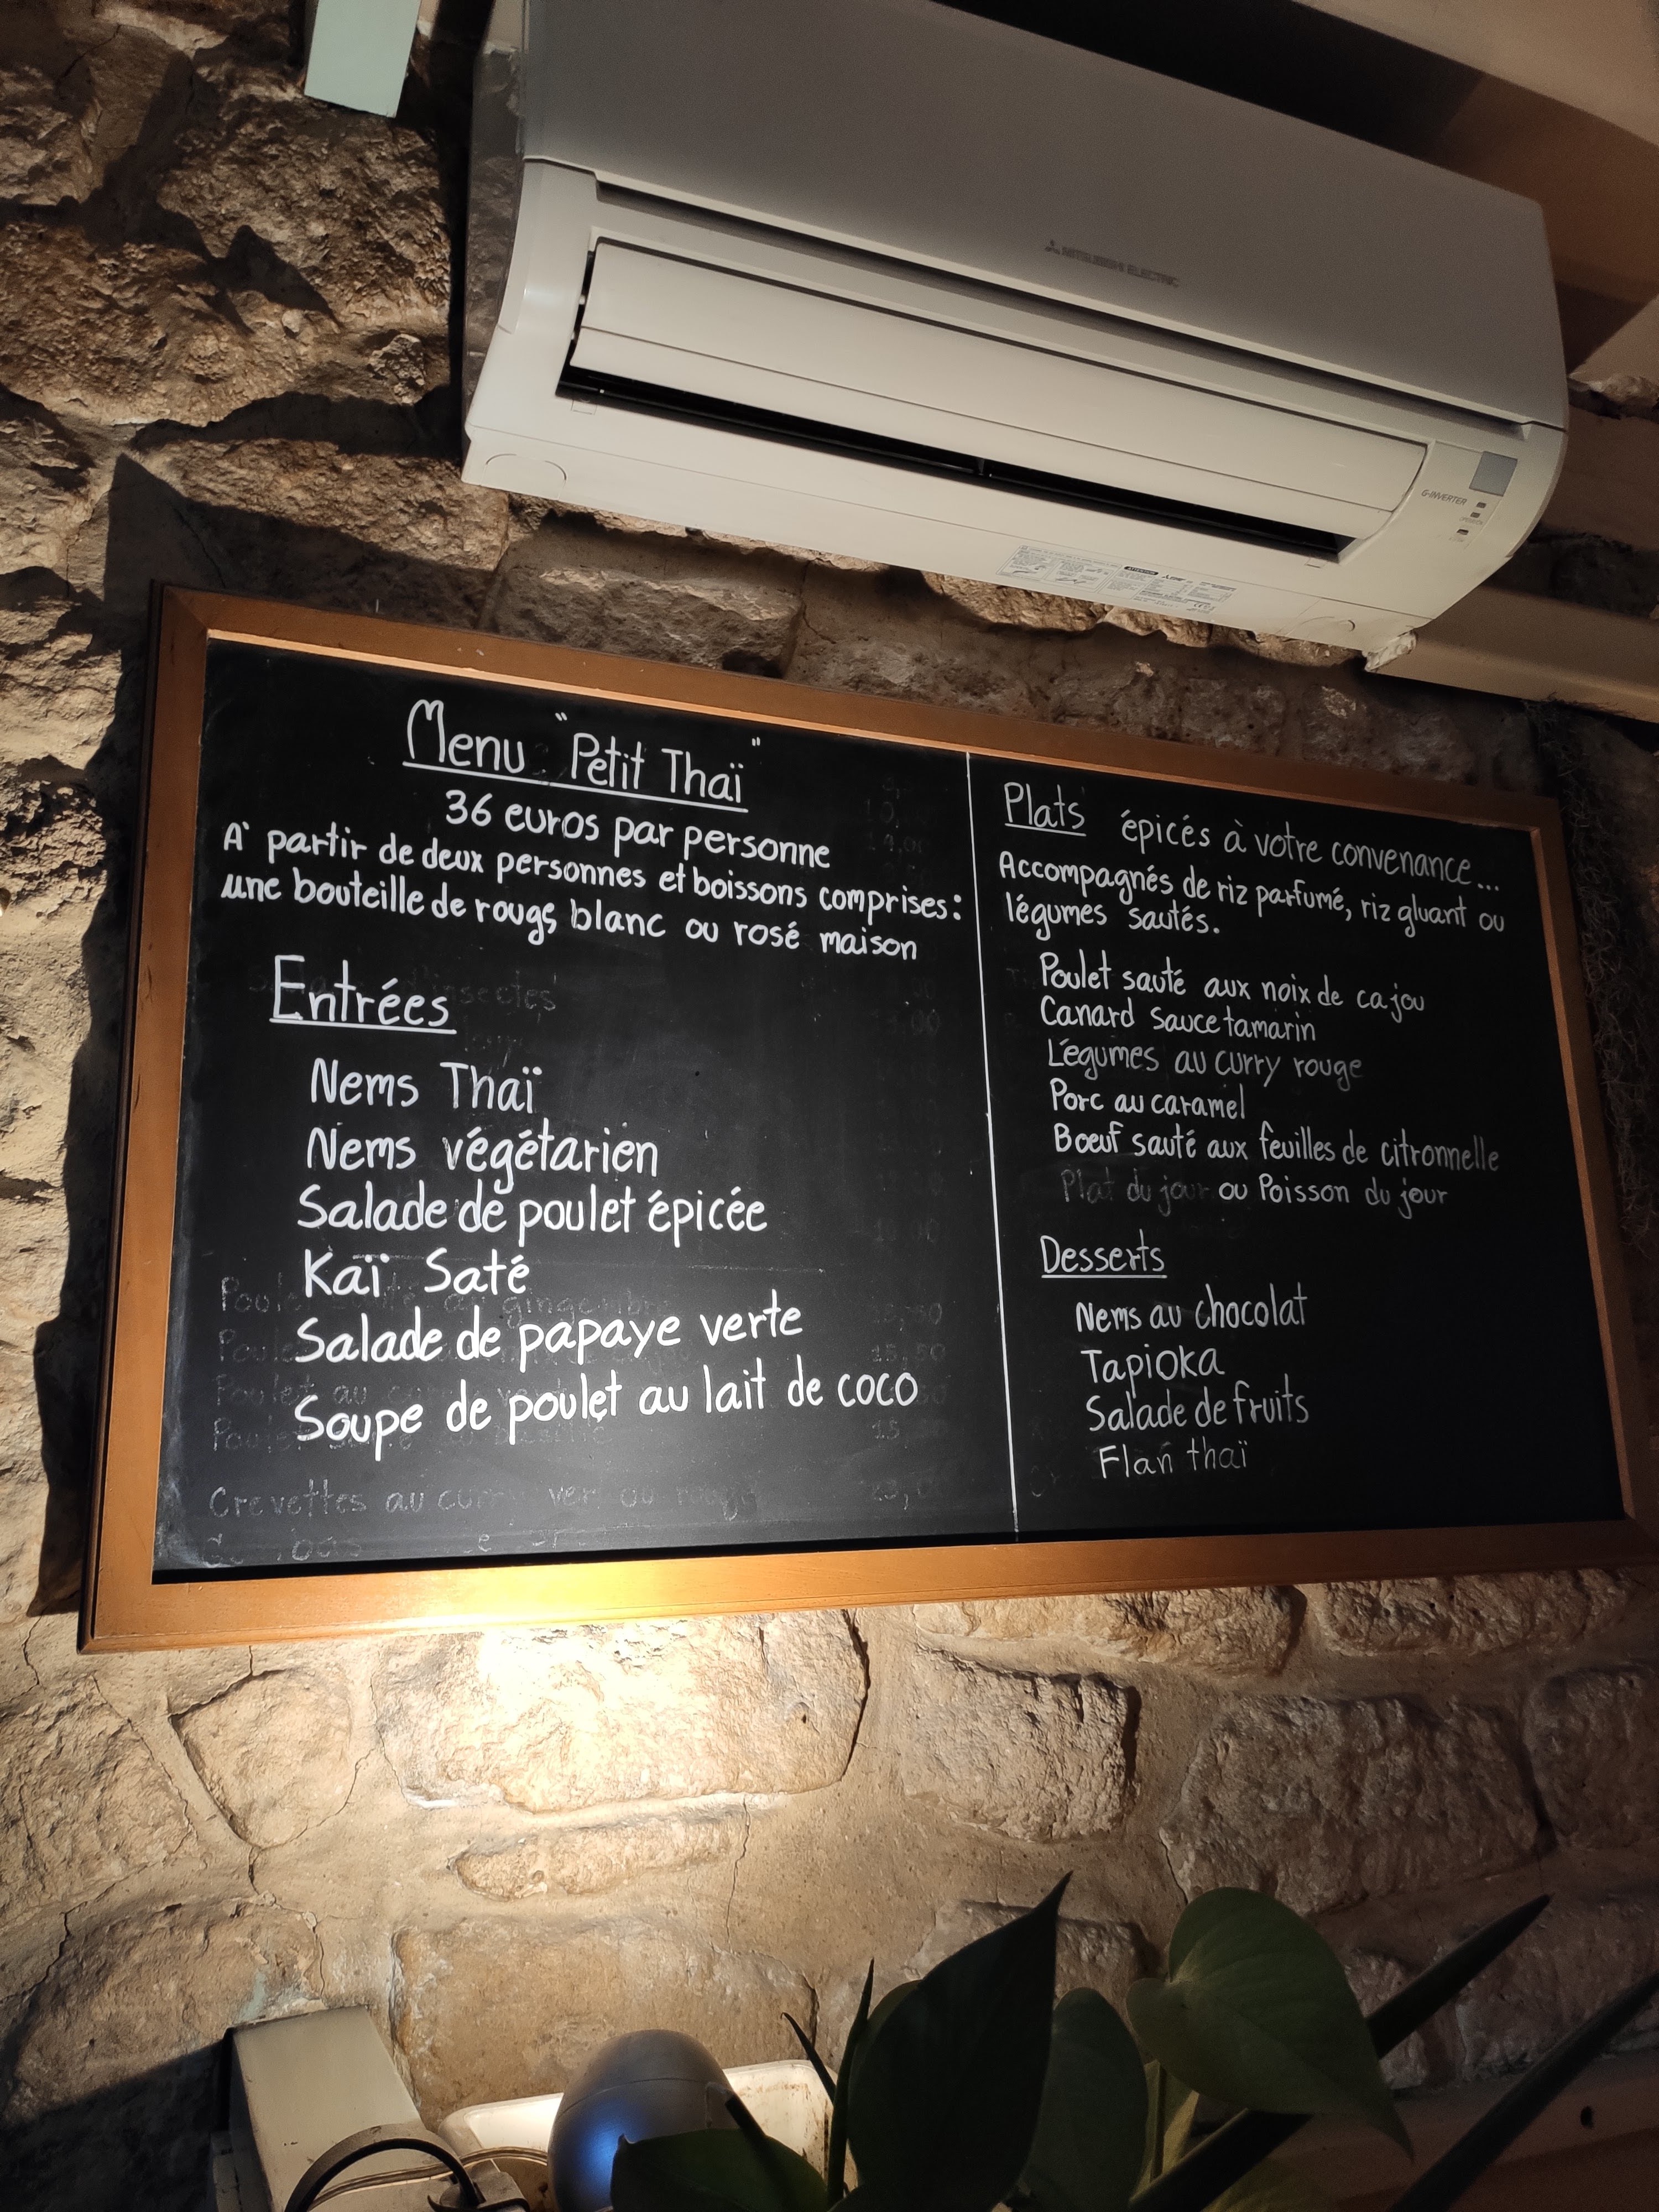 MITSUBISHI ELECTRIC
G-INVERTER
Menu "Petit Thaï"
36 euros par personne
A' partir de deux personnes et boissons comprises:
une bouteille de rouge, blanc ou rosé maison
Entrées
Nems Thaï
Nems végétarien
Salade de poulet épicée
Kaï Saté
Salade de papaye verte
Soupe de poulet au lait de coco
Crevettes au
Plats épicés à votre convenance...
Accompagnés de riz parfumé, riz gluant ou
légumes sautés.
Poulet sauté aux noix de cajou
Canard sauce tamarin
Légumes au curry rouge
Porc au caramel
Bœuf sauté aux feuilles de citronnelle
Plat du jour ou Poisson du jour
Desserts
Nems au chocolat
Tapioka
Salade de fruits
Flan thaï